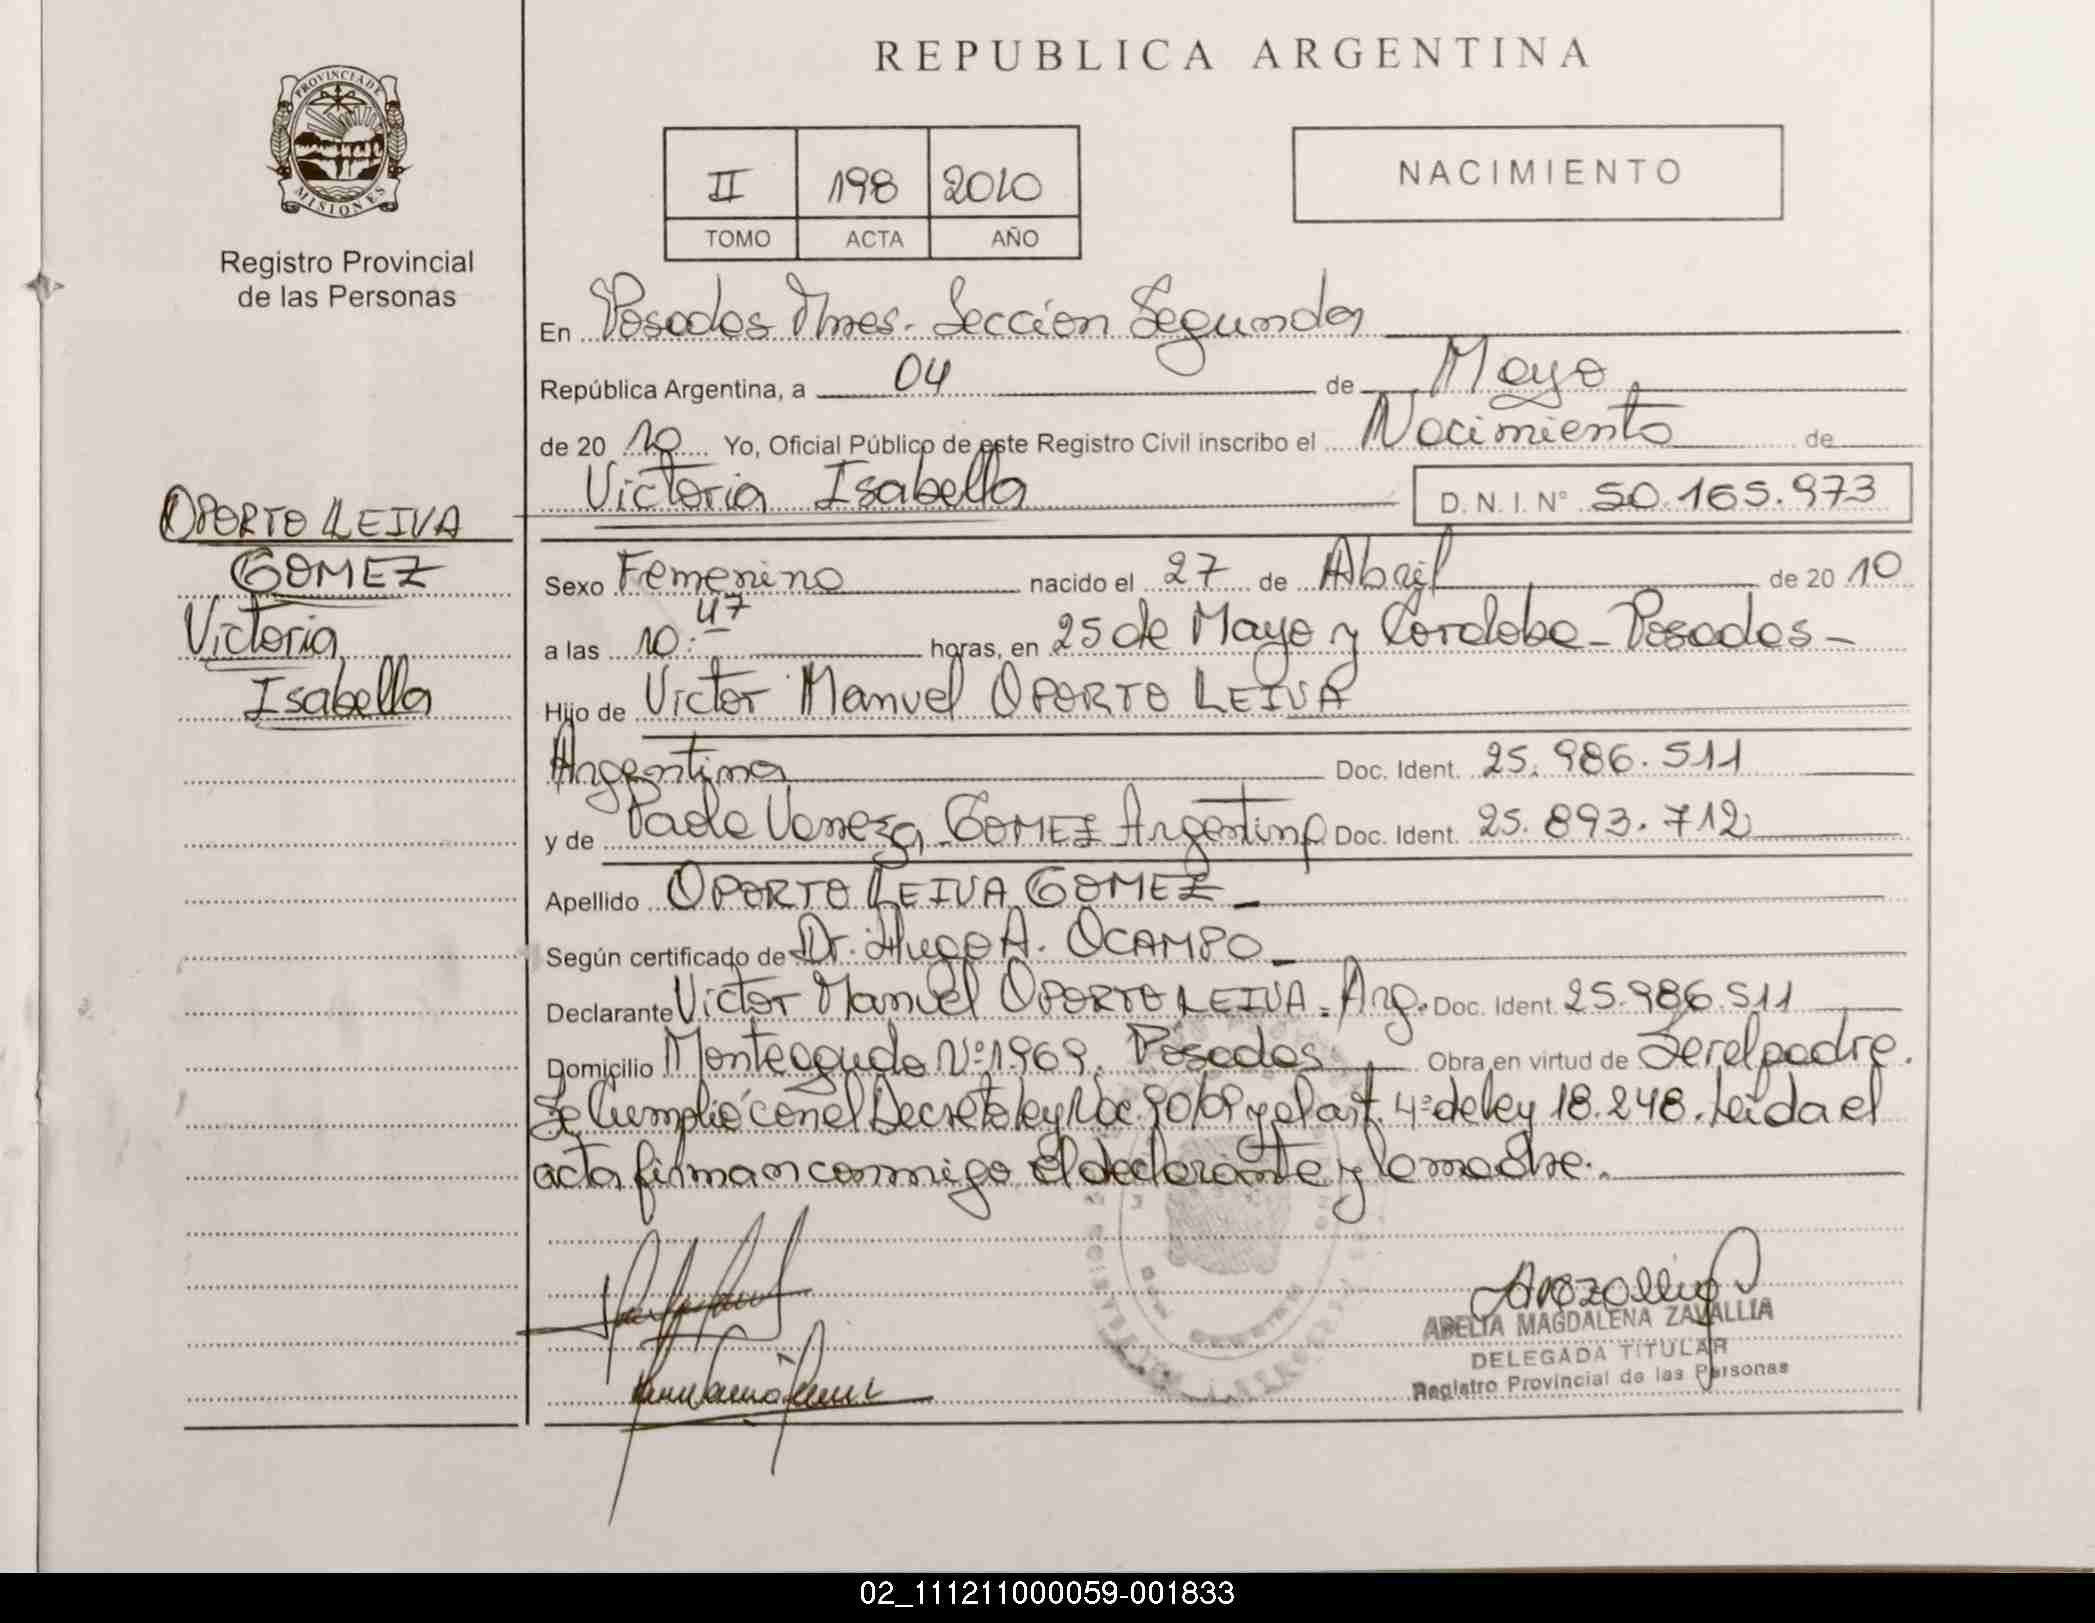 REPUBLICA ARGENTINA
PROVINCIA DE
MISIONES
Registro Provincial
de las Personas
II 198 2010
TOMO ACTA AÑO
NACIMIENTO
En Posadas Mnes. Sección Segunda
República Argentina, a 04 de Mayo
de 2010 Yo, Oficial Público de este Registro Civil inscribo el Nacimiento de
Victoria Isabella D. N. I. N° 50.165.973
OPORTO LEIVA
GOMEZ
Victoria
Isabella
Sexo Femenino nacido el 27 de Abril de 2010
a las 10:47 horas, en 25 de Mayo y Cordoba - Posadas -
Hijo de Victor Manuel OPORTO LEIVA
Argentino Doc. Ident. 25.986.511
y de Paola Vanesa GOMEZ Argentina Doc. Ident. 25.893.712
Apellido OPORTO LEIVA GOMEZ
Según certificado de Dr. Hugo A. OCAMPO
Declarante Victor Manuel OPORTO LEIVA - Arg. Doc. Ident. 25.986.511
Domicilio Monteagudo N° 1969. Posadas Obra en virtud de Ser el padre.
Se Cumplió con el Decreto ley Nac. 90/09 y el art. 4° de ley 18.248. Leída el
acta firman conmigo el declarante y la madre.
ABELIA MAGDALENA ZAVALLIA
DELEGADA TITULAR
Registro Provincial de las Personas
02_111211000059-001833